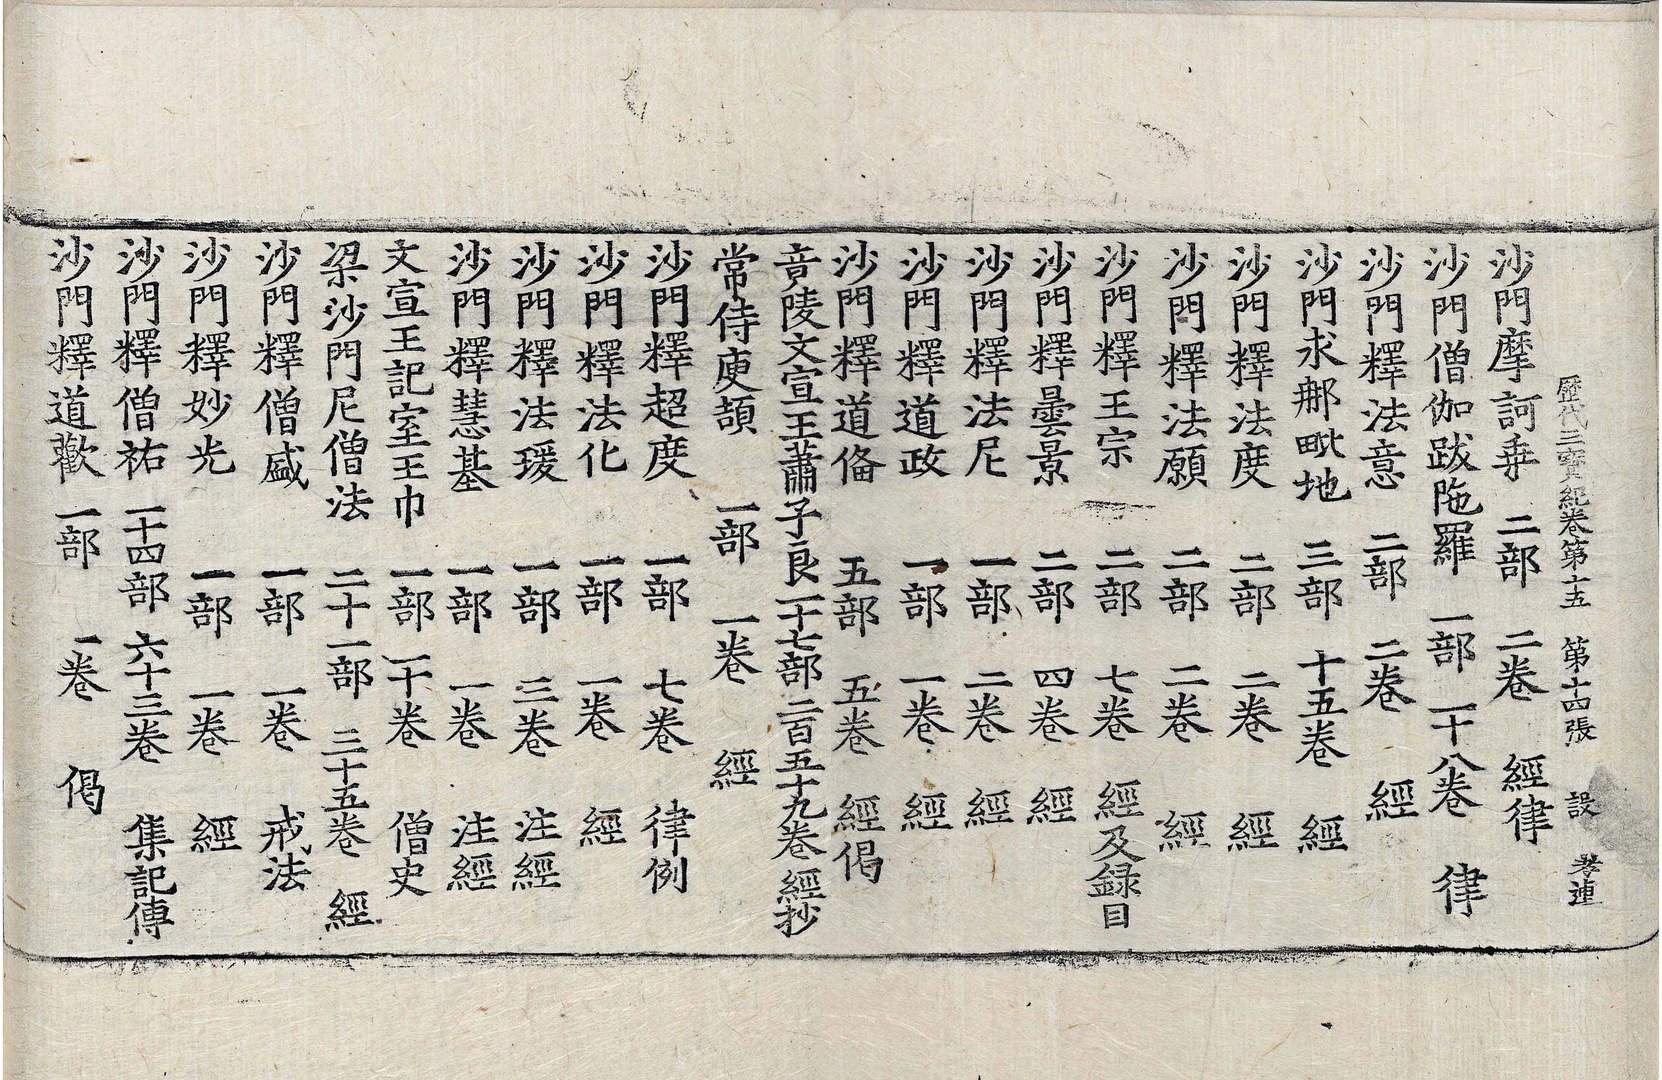 歷代三寶紀卷第十五 第十四張 設 孝連
沙門摩訶乗 二部 二卷 經律
沙門僧伽跋陁羅 一部 一十八卷 律
沙門釋法意 二部 二卷 經
沙門求那毗地 三部 十五卷 經
沙門釋法度 二部 二卷 經
沙門釋法願 二部 二卷 經
沙門釋王宗 二部 七卷 經及録目
沙門釋曇景 二部 四卷 經
沙門釋法尼 一部 二卷 經
沙門釋道政 一部 一卷 經
沙門釋道俻 五部 五卷 經偈
竟陵文宣王蕭子良一十七部 二百五十九卷 經抄
常侍庾頡 一部 一卷 經
沙門釋超度 一部 七卷 律例
沙門釋法化 一部 一卷 經
沙門釋法瑗 一部 三卷 注經
沙門釋慧基 一部 一卷 注經
文宣王記室王巾 一部 一十卷 僧史
梁沙門尼僧法 二十一部 三十五卷 經
沙門釋僧盛 一部 一卷 戒法
沙門釋妙光 一部 一卷 經
沙門釋僧祐 一十四部 六十三卷 集記傳
沙門釋道歡 一部 一卷 偈